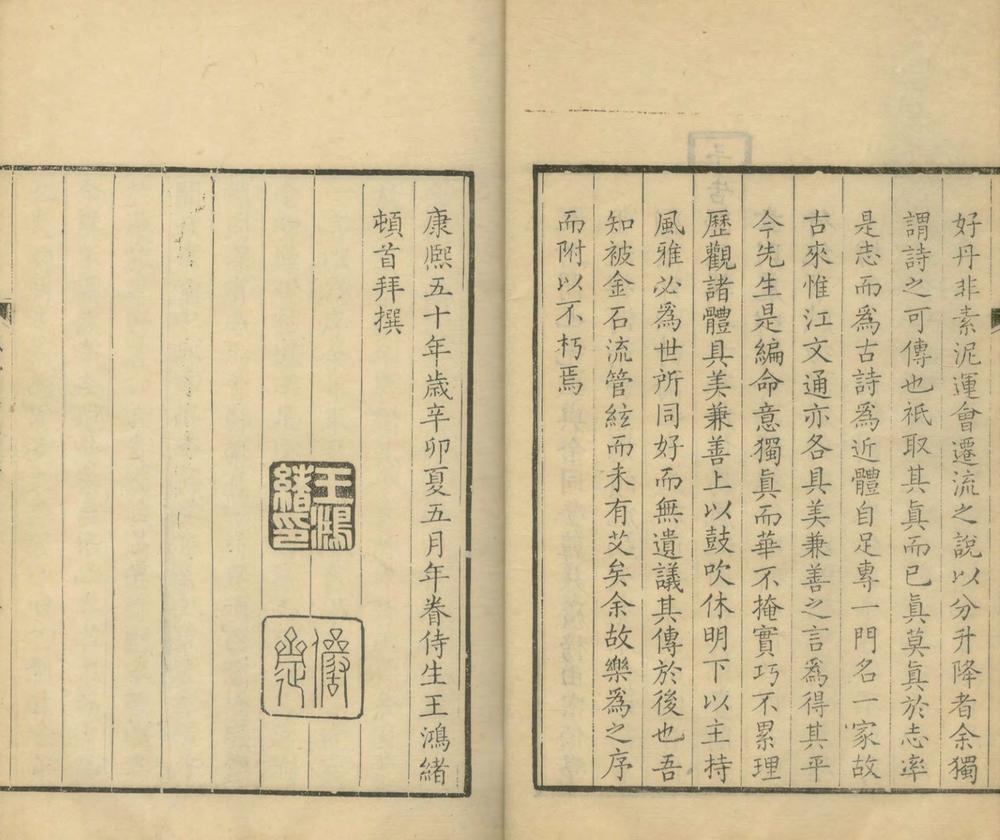 好丹非素泥運會遷流之說以分升降者余獨
謂詩之可傳也祇取其眞而已眞莫眞於志率
是志而爲古詩爲近體自足專一門名一家故
古來惟江文通亦各具美兼善之言爲得其平
今先生是編命意獨眞而華不掩實巧不累理
歷觀諸體具美兼善上以鼓吹休明下以主持
風雅必爲世所同好而無遺議其傳於後也吾
知被金石流管絃而未有艾矣余故樂爲之序
而附以不朽焉
康熙五十年歲辛卯夏五月年眷侍生王鴻緒
頓首拜撰
王鴻
緒印
儼齋